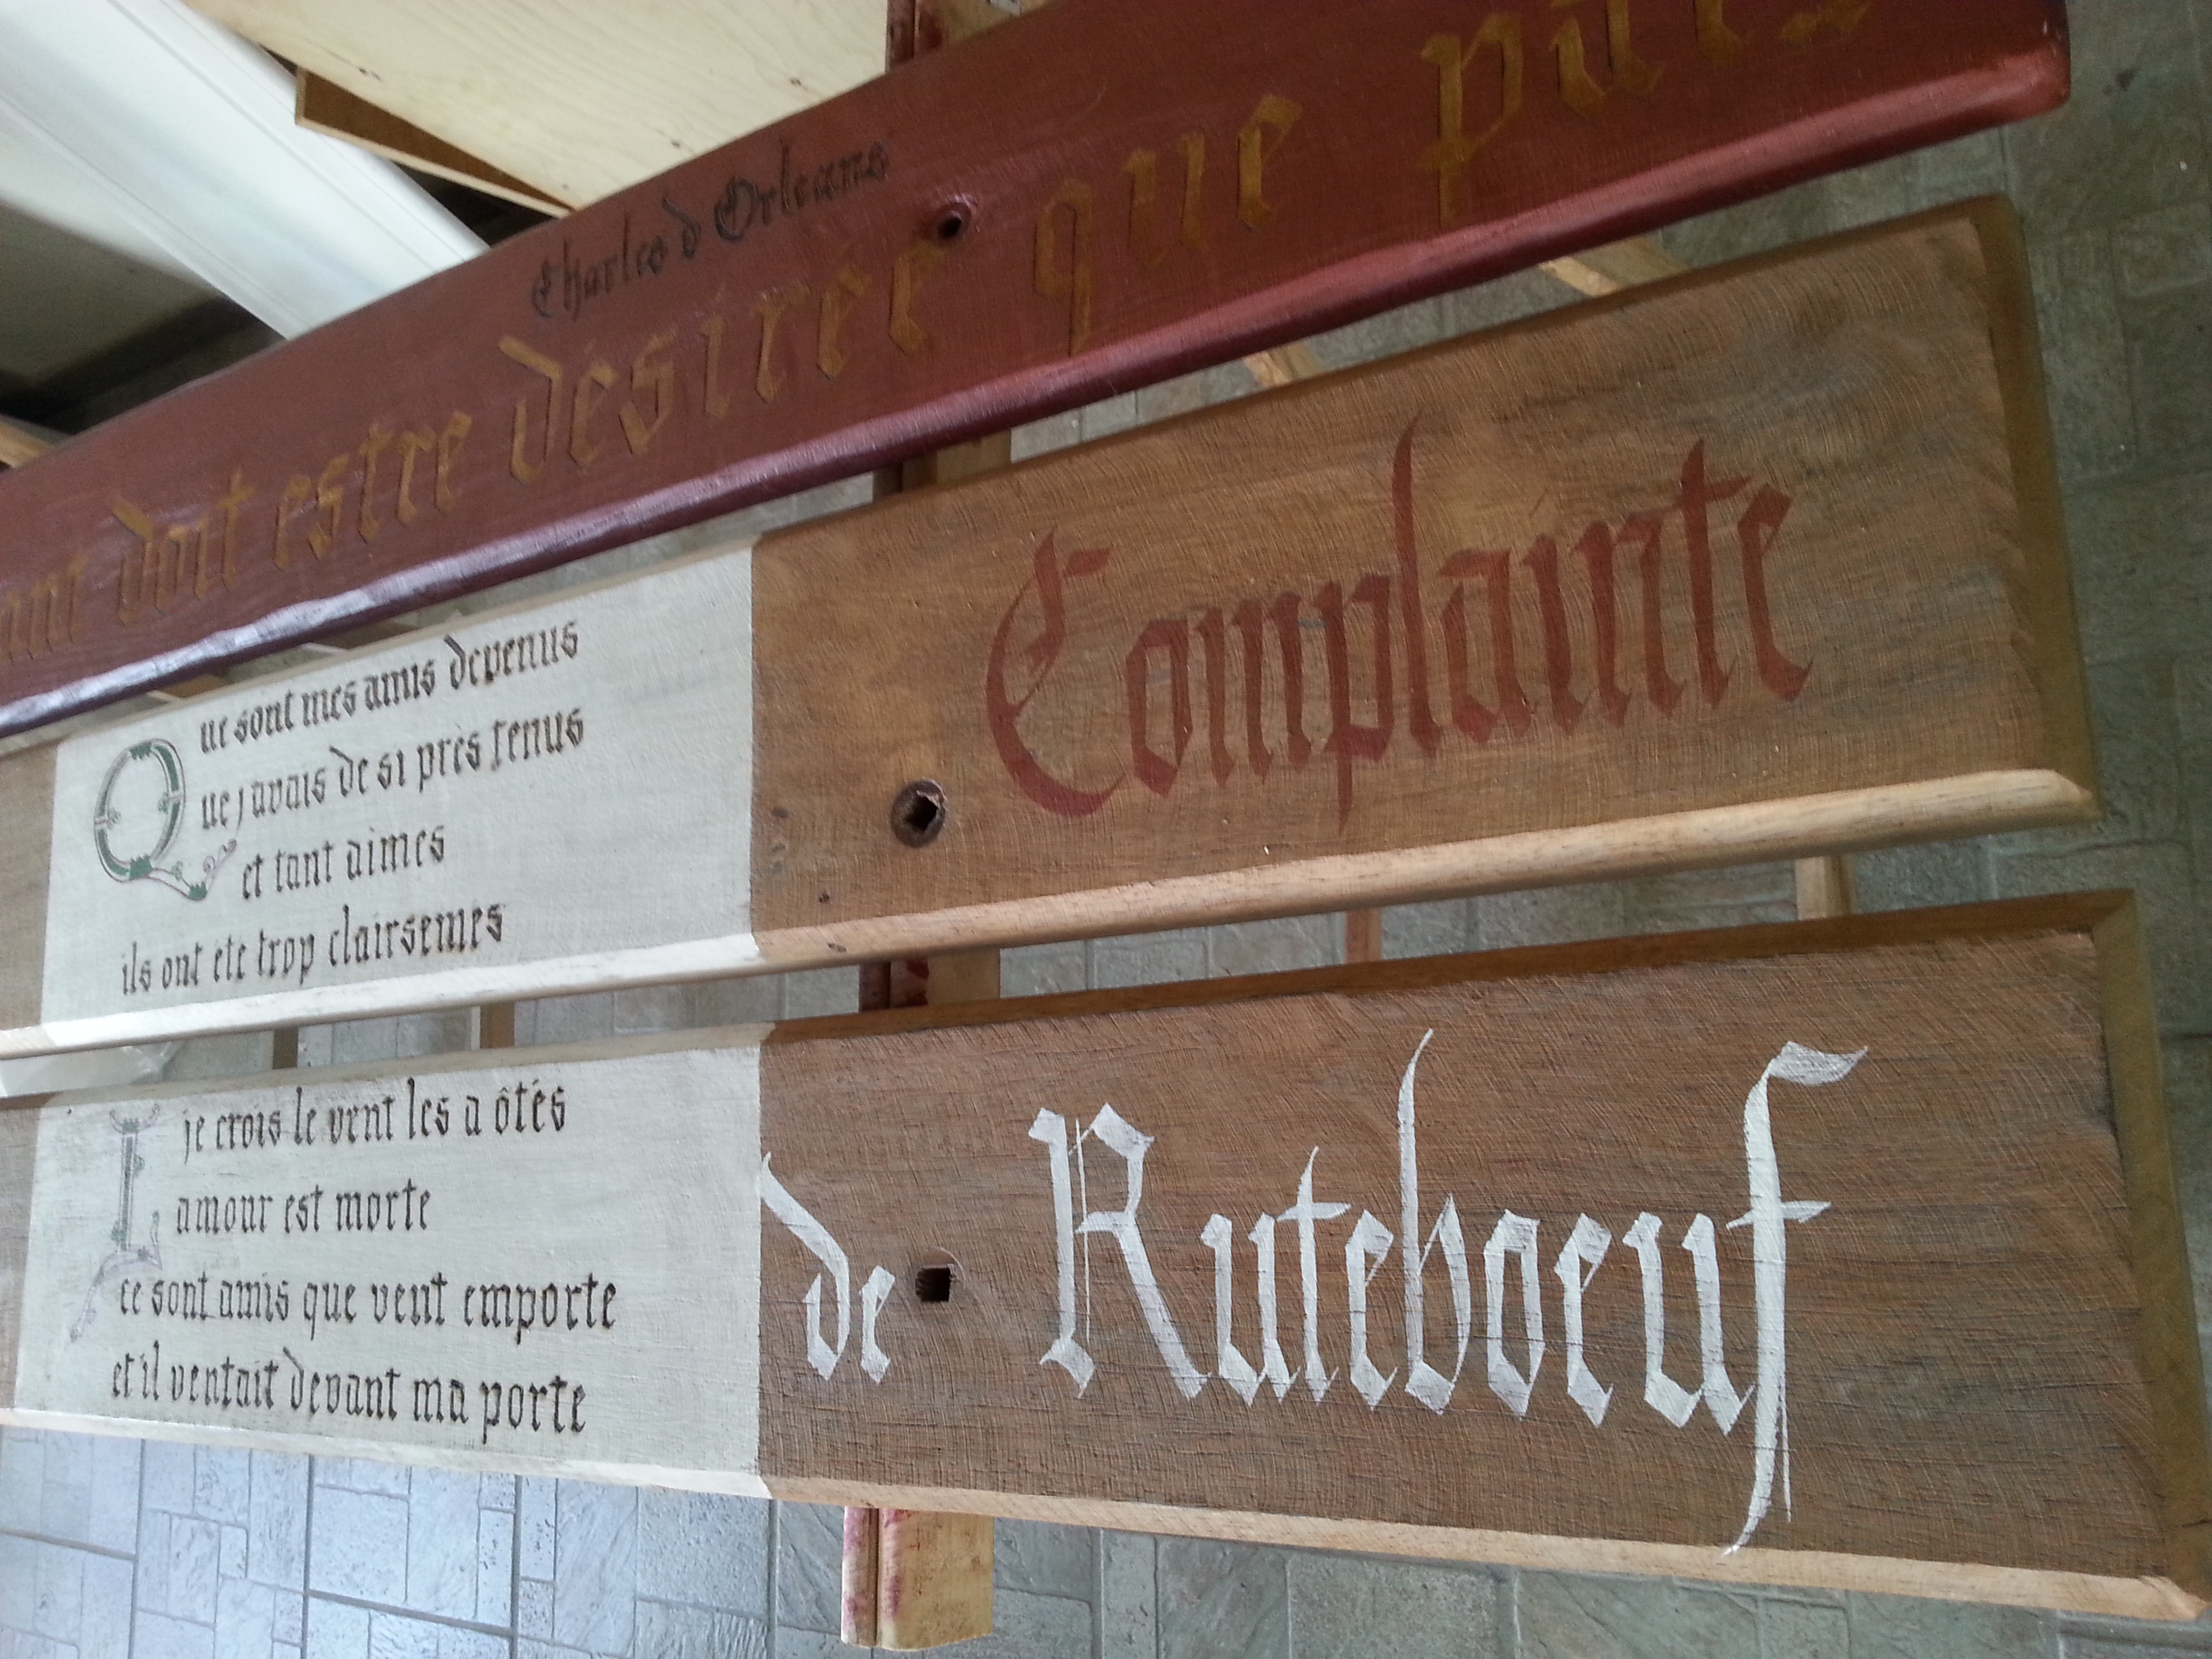 Charles d Orleans
doit estre désirée que
Que sont mes amis devenus
ue j avais de si près tenus
et tant aimes
ils ont ete trop clairsemes
Complainte
je crois le vent les a ôtés
L amour est morte
ce sont amis que vent emporte
et il ventait devant ma porte
de Ruteboeuf